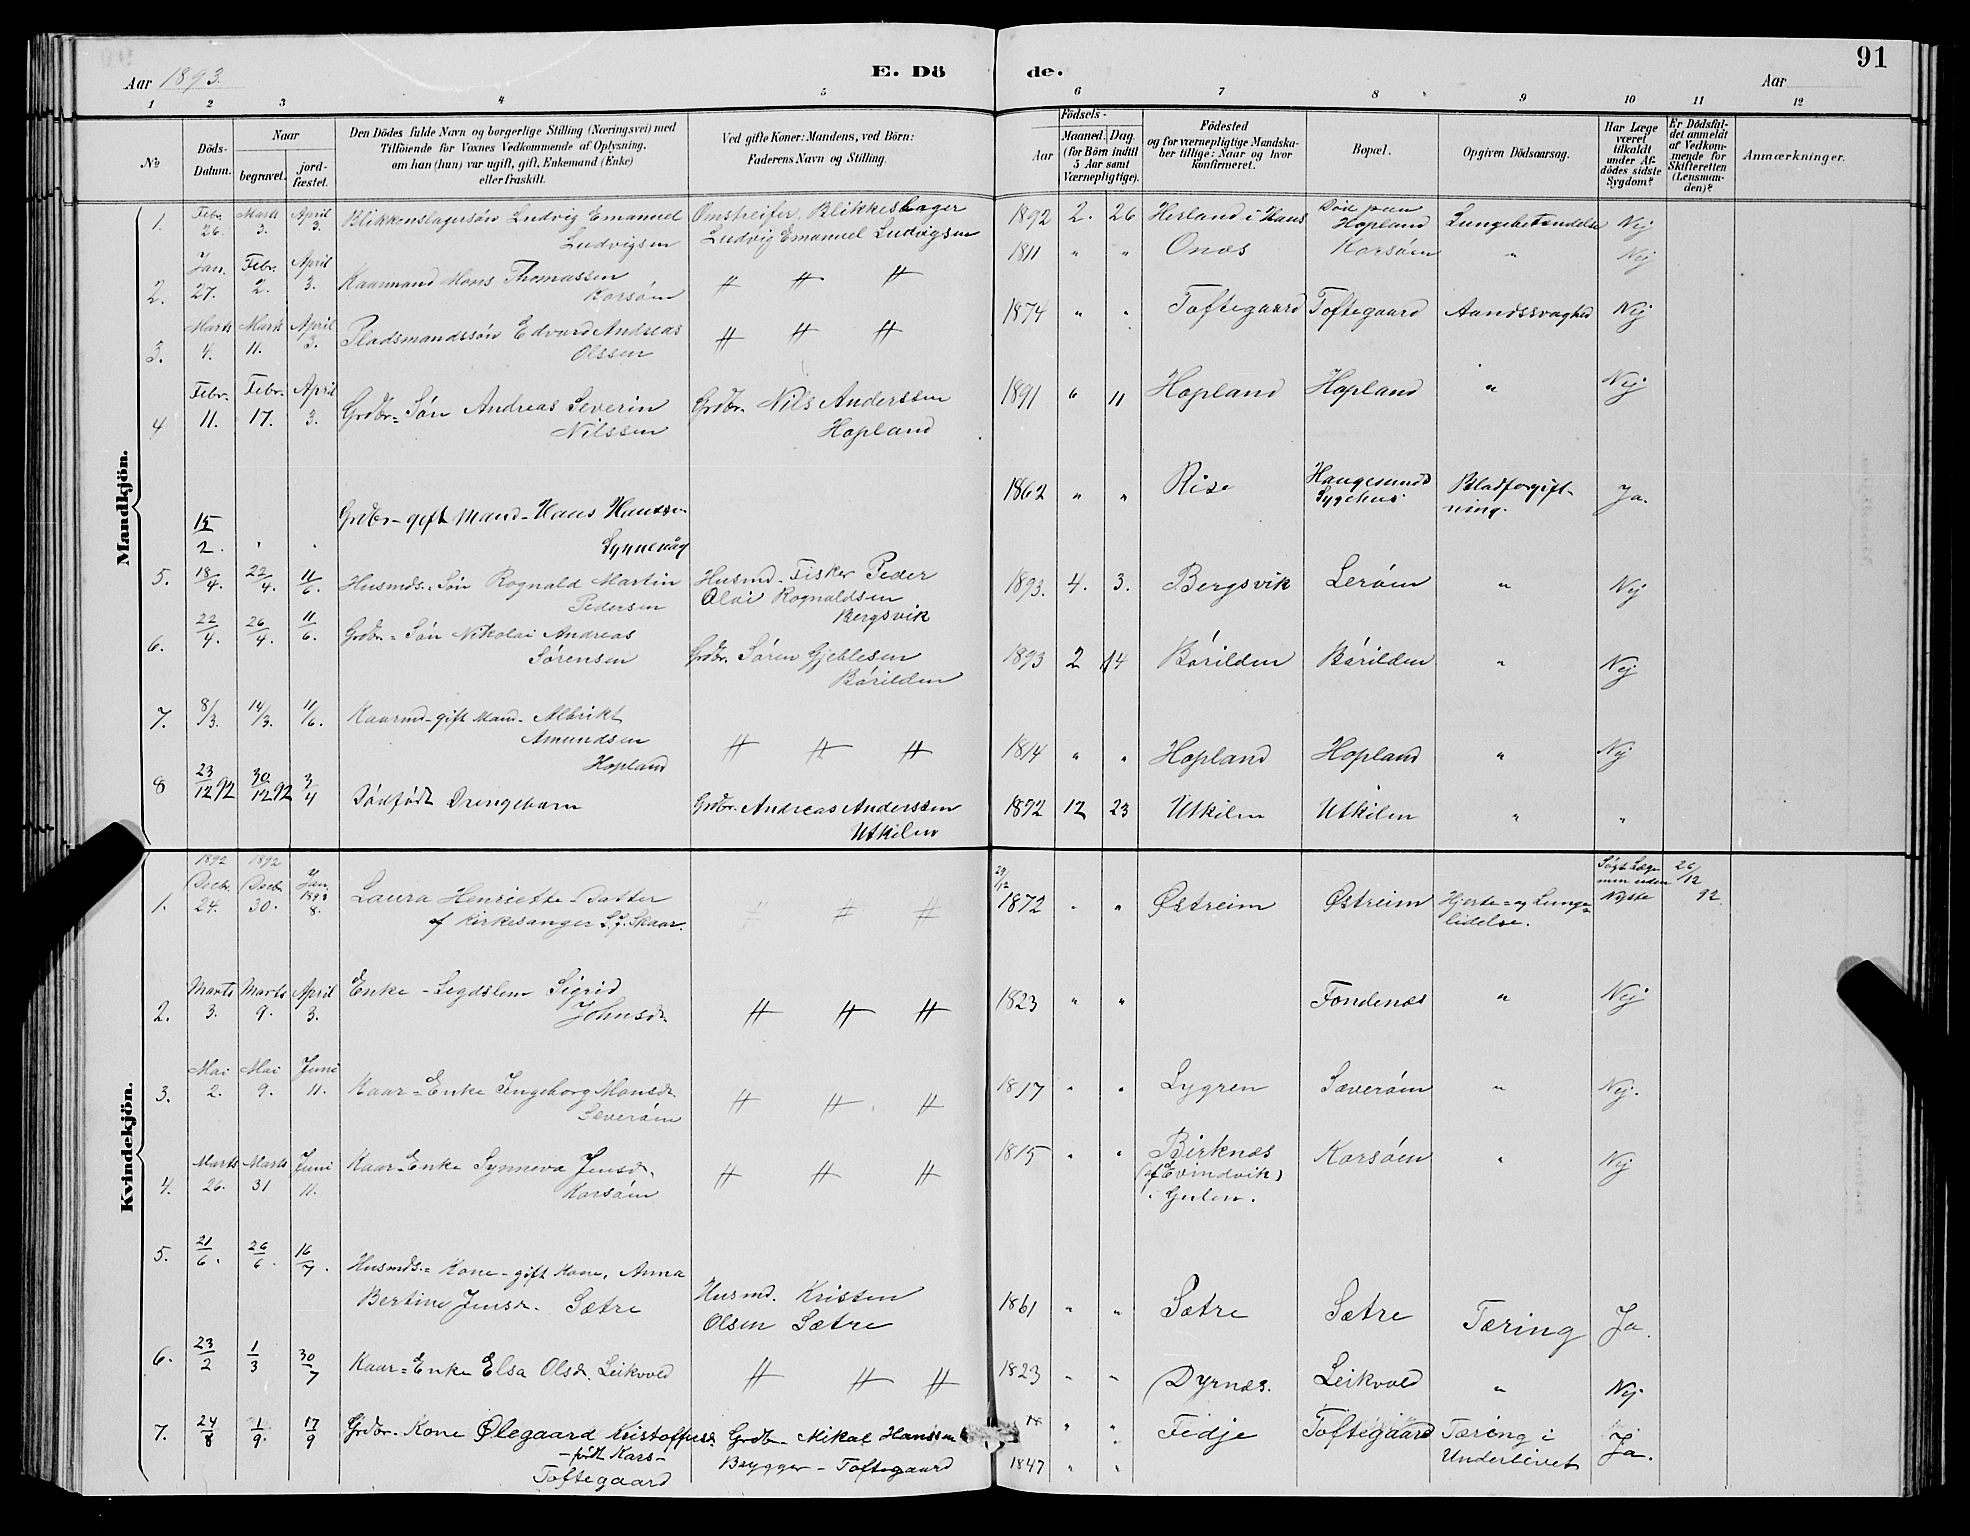 91
Aar 1893.
E. Dö de.
Aar
1 2 3 4 5 6 7 8 9 10 11 12
No
Döds-Datum.
Naar
begravet.
jord-fæstet.
Den Dödes fulde Navn og borgerlige Stilling (Næringsvei) med
Tilföiende for Voxnes Vedkommende af Oplysning,
om han (hun) var ugift, gift, Enkemand (Enke)
eller fraskilt.
Ved gifte Koner: Mandens, ved Börn:
Faderens Navn og Stilling.
Födsels-
Aar
Maaned. Dag.
(for Börn indtil
5 Aar samt
Værnepligtige).
Födested
og for værnepligtige Mandska-
ber tillige: Naar og hvor
konfirmeret.
Bopæl.
Opgiven Dödsaarsag.
Har Læge
været
tilkaldt
under Af-
dødes sidste
Sygdom?
Er Dödsfal-
det anmeldt
af Vedkom-
mende for
Skifteretten
(Lensman-
den)?
Anmærkninger.
Mandkjön.
1. Febr. 26. Marts 3. April 3. Blikkenslagersøn Ludvig Emanuel Ludvigsen Omstreifer, Blikkeslager Ludvig Emanuel Ludvigsen 1892 2. 26 Herland i Haus Död paa Hopland Lungebetændelse Nej
2. Jan. 27. Febr. 2. April 3. Kaarmand Mons Thomassen Korsøen " " " 1811 " " Onæs Korsøen " Nej
3. Marts 4. Marts 11. April 3. Pladsmandssøn Edvard Andreas Olssen " " " 1874 " " Toftegaard Toftegaard Aandssvaghed Nej
4 Febr. 11. Febr. 17. April 3. Grdbr.-Søn Andreas Severin Nilssen Grdbr. Nils Anderssen Hopland 1891 6 11 Hopland Hopland " Nej
15/2. Grdbr.-gift Mand-Hans Hanssen Synnevåg 1862 " " Rise Haugesunds Sygehus Blodforgiftning. Ja.
5. 18/4. 22/4. 11/6. Husmds.-Søn Rognald Martin Pedersen Husmd.-Fisker Peder Olai Rognaldsen Bergsvik 1893. 4. 3. Bergsvik Lerøen " Nej
6. 22/4. 26/4. 11/6. Grdbr.-Søn Nikolai Andreas Sørensen Grdbr. Søren Gjeblesen Börilden 1893 2 14 Börilden Börilden " Nej
7. 8/3. 14/3. 11/6. Kaarmd-gift Mand-Albrikt Amundsen Hopland " " " 1814 " " Hopland Hopland " Nej
8 23/12 92 30/12 92 3/4 Dödfödt Drengebarn Grdbr. Andreas Anderssen Utkilen 1892 12 23 Utkilen Utkilen " "
Kvindekjön.
1. 1892 Decbr. 24. 1892 Decbr. 30. Jan. 1893 8. Laura Henriette Datter af Kirkesanger S. J. Skaar. " " " 29/12 1872 " " Østreim Østreim Hjerte- og Lungelidelse. Søgt Lægemen uden Nytte 26/12 92
2. Marts 3. Marts 9. April 3. Enke - Legdslem Sigrid Johnsdr. " " " 1823 " " Fondenæs " Nej
3. Mai 2. Mai 9. Juni 11. Kaar-Enke Ingeborg Monsdr. Sæverøen " " " 1817 " " Lygren Sæverøen " Nej.
4. Marts 26. Marts 31 Juni 11. Kaar-Enke Synneva Jensdr. Korsøen " " " 1815 " " Birknæs (af Evindvik) i Gulen. Korsøen " Nej
5. 21/6. 26/6. 16/7. Husmds.-Kone-gift Kone, Anna Bertine Jensdr. Sætre Husmd. Kristen Olsen Sætre 1861 " " Sætre Sætre Tæring Ja.
6. 23/2 1/3 30/7 Kaar-Enke Elsa Olsdr. Leikvold " " " 1823 " " Dyrnæs. Leikvold " Nej
7. 24/8 1/9. 17/9 Grdbr.-Kone Ølegaard Kristoffersdr. -født Kors- Toftegaard Grdbr.-Mikal Hanssen Brygger-Toftegaard 1847 " " Fedje Toftegaard Tæring i Underlivet Ja.